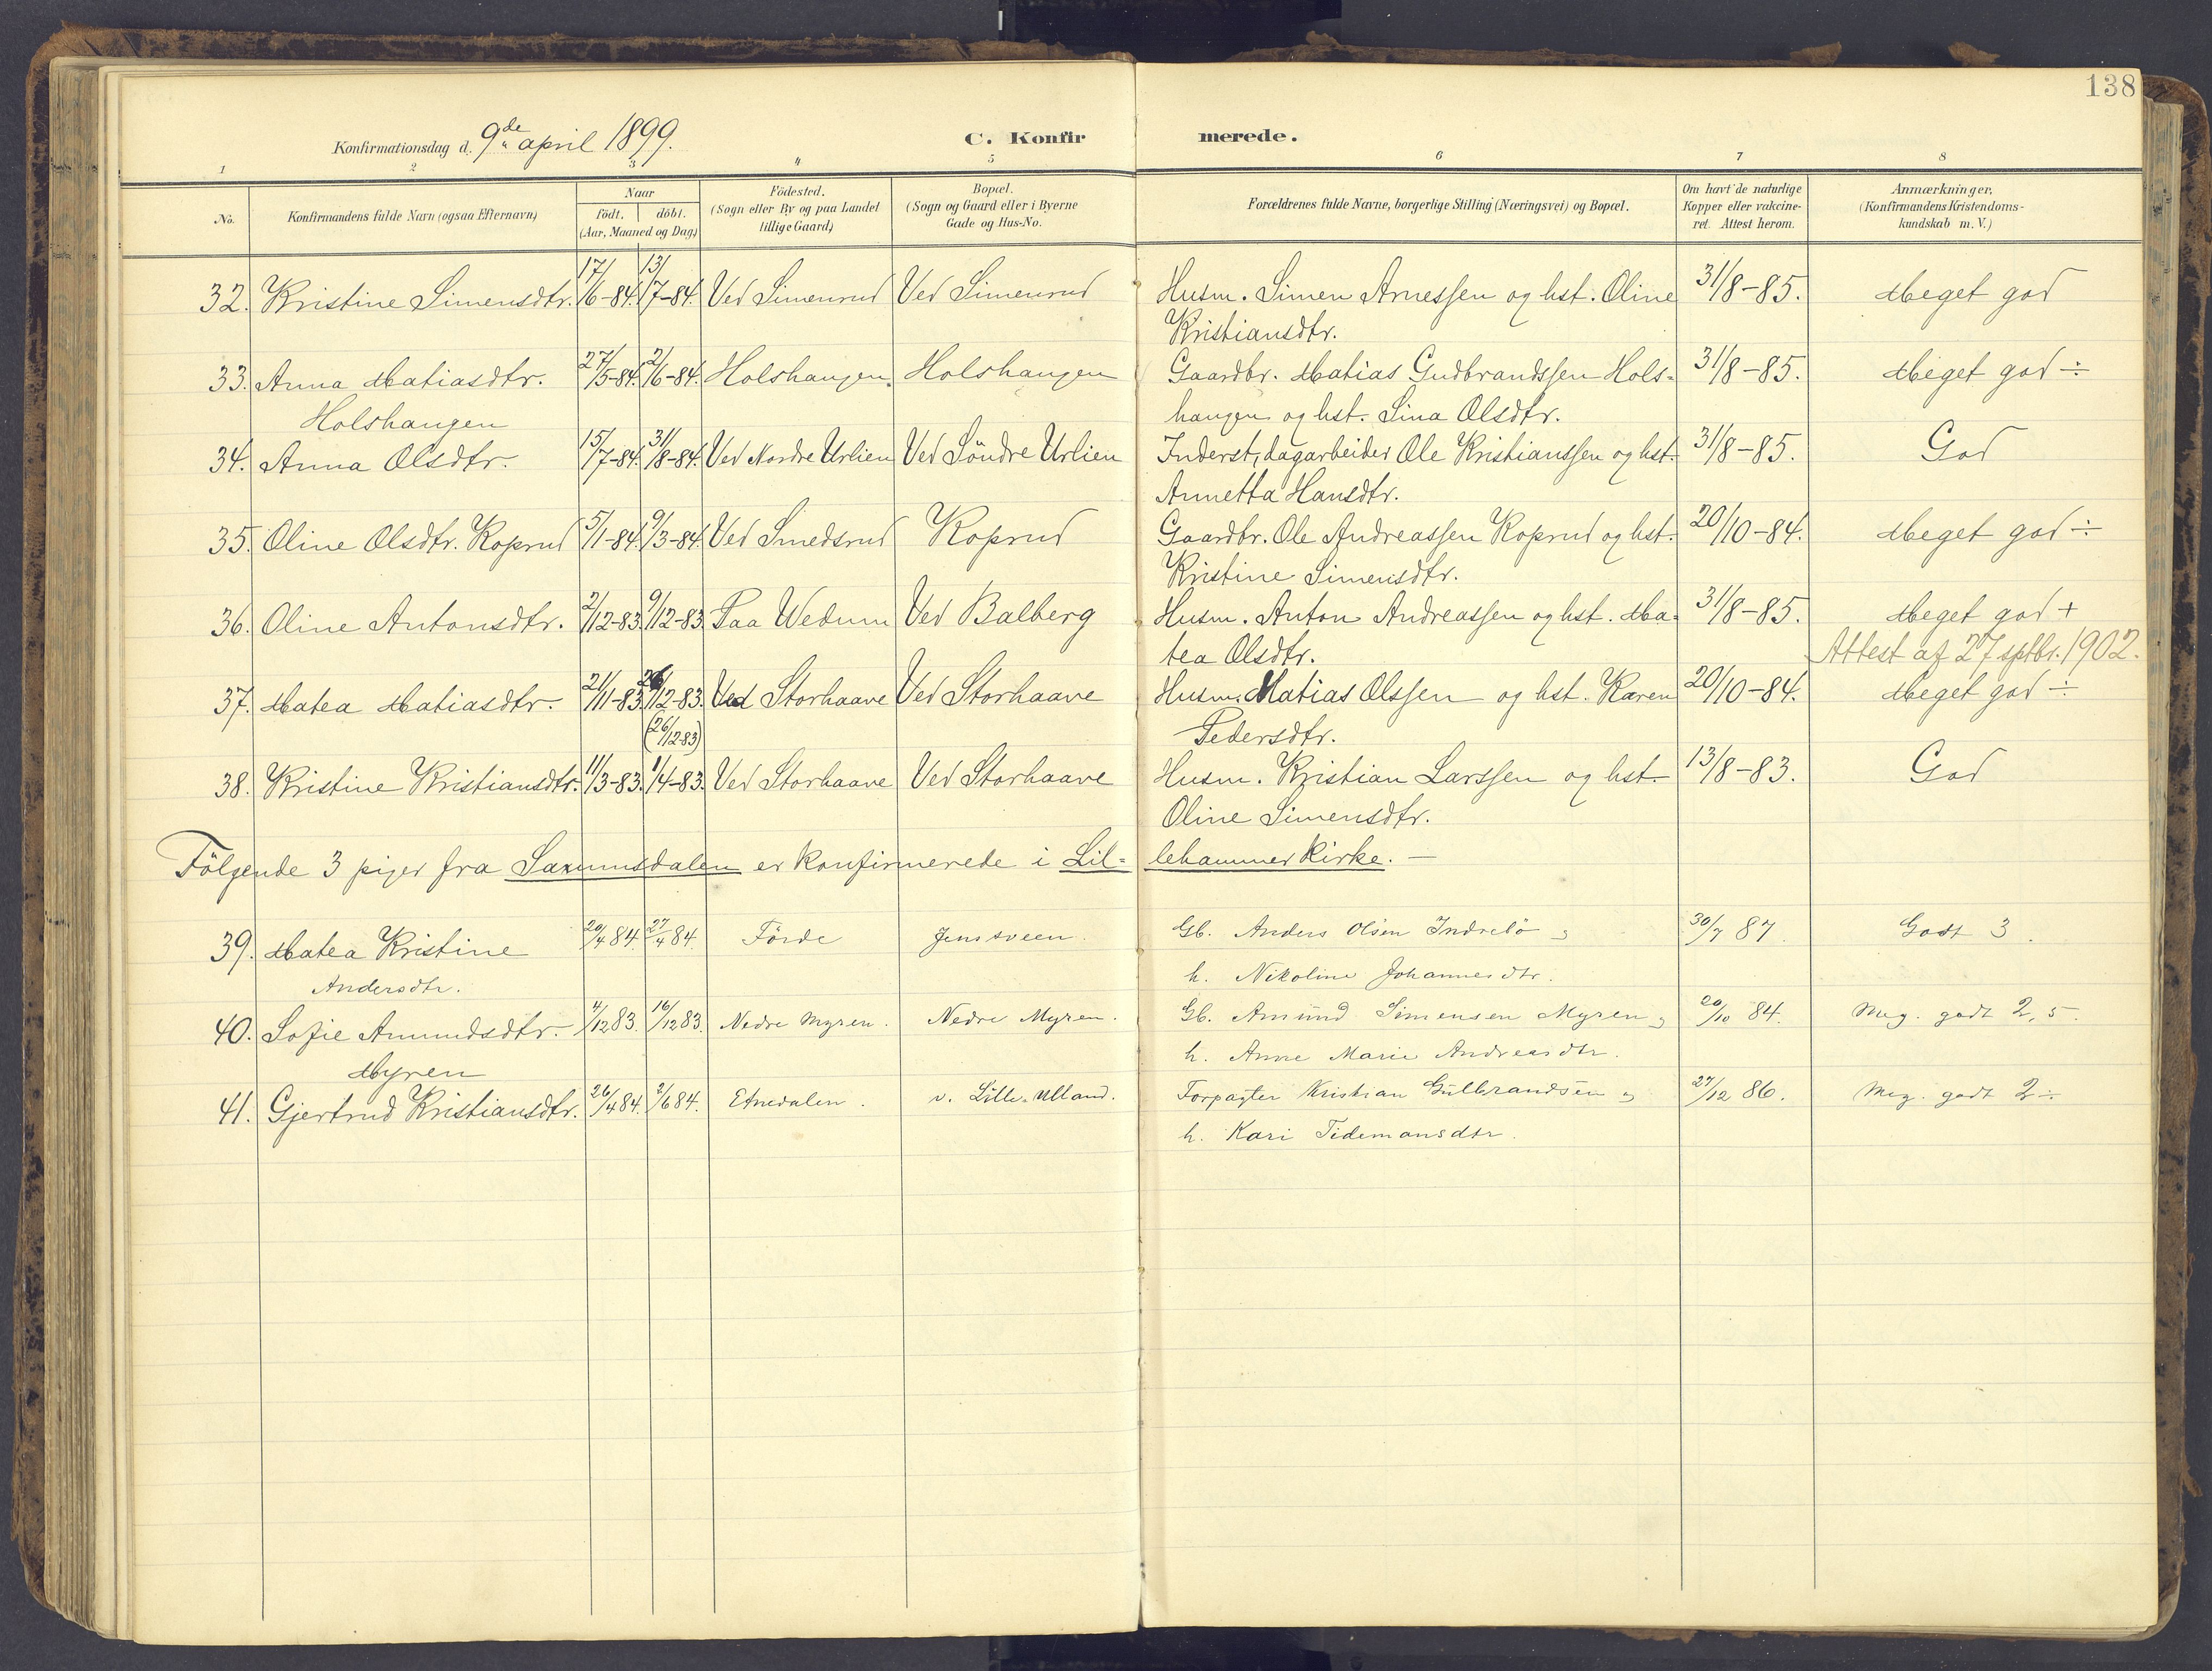 138
Konfirmationsdag d. 9de april 1899. C. Konfirmerede.
1 2 3 4 5 6 7 8
No. Konfirmandens fulde Navn (ogsaa Efternavn) Naar födt. döbt. (Aar, Maaned og Dag) Födested. (Sogn eller By og paa Landet tillige Gaard) Bopæl. (Sogn og Gaard eller i Byerne Gade og Hus-No. Forældrenes fulde Navne, borgerlige Stilling (Næringsvei) og Bopæl. Om havt de naturlige Kopper eller vakcineret. Attest herom. Anmærkninger, (Konfirmandens Kristendomskundskab m. V.)
32. Kristine Simensdtr. 17/6-84. 13/7-84. Ved Simenrud Ved Simenrud Husm. Simen Arnessen og hst. Oline 31/8-85. Meget god
Kristiansdtr.
33. Anna Matiasdtr. 27/5-84. 2/6-84. Holshaugen. Holshaugen Gaardbr. Matias Gudbrandssen Hols= 31/8-85. Meget god ÷
Holshaugen haugen og hst. Lina Olsdtr.
34. Anna Olsdtr. 15/7-84. 31/8-84. Ved Nordre Urlien Ved Söndre Urlien Inderst, dagarbeider Ole Kristianssen og hst. 31/8-85. God
Annetta Hansdtr.
35. Oline Olsdtr. Koprud 5/1-84. 9/3-84. Ved Smedsrud Koprud Gaardbr. Ole Andreassen Koprud og hst. 20/10-84. Meget god ÷
Kristine Simensdtr.
36. Oline Antonsdtr. 2/12-83. 9/12-83. Paa Wedum Ved Balberg Husm. Anton Andreassen og hst. Ma= 31/8-85. Meget god +
tea Olsdtr. Attest af 27 sptbr. 1902.
37. Matea Matiasdtr. 21/11-83. 26/12-83. Ved Storhaave Ved Storhaave Husm. Matias Olssen og hst. Karen 20/10-84. Meget god ÷
(26/12 83) Pedersdtr.
38. Kristine Kristiansdtr. 11/3-83. 1/4-83. Ved Storhaave Ved Storhaave Husm. Kristian Larssen og hst. 13/8-83. God
Oline Simensdtr.
Fölgende 3 piger fra Saxumsdalen er konfirmerede i Lil= lehammer Kirke. —
39. Matea Kristine 20/4 84. 27/4 84. Förde Jensveen. Gb. Anders Olsen Indrebö 30/7 87. Godt 3.
Andersdtr. h. Nikoline Johannesdtr.
40. Sofie Amundsdtr. 4/12 83. 16/12 83. Nedre Myren. Nedre Myren. Gb. Amund Simensen Myren 20/10 84. Meg. godt 2,5.
Myren h. Anne Marie Andreasdtr.
41. Gjertrud Kristiansdtr. 26/4 84. 2/6 84. Etnedalen. v. Lille-Ulland. Forpagter Kristian Gulbrandsen 27/12 86. Meg. godt 2 ÷
h. Kari Tidemansdtr.